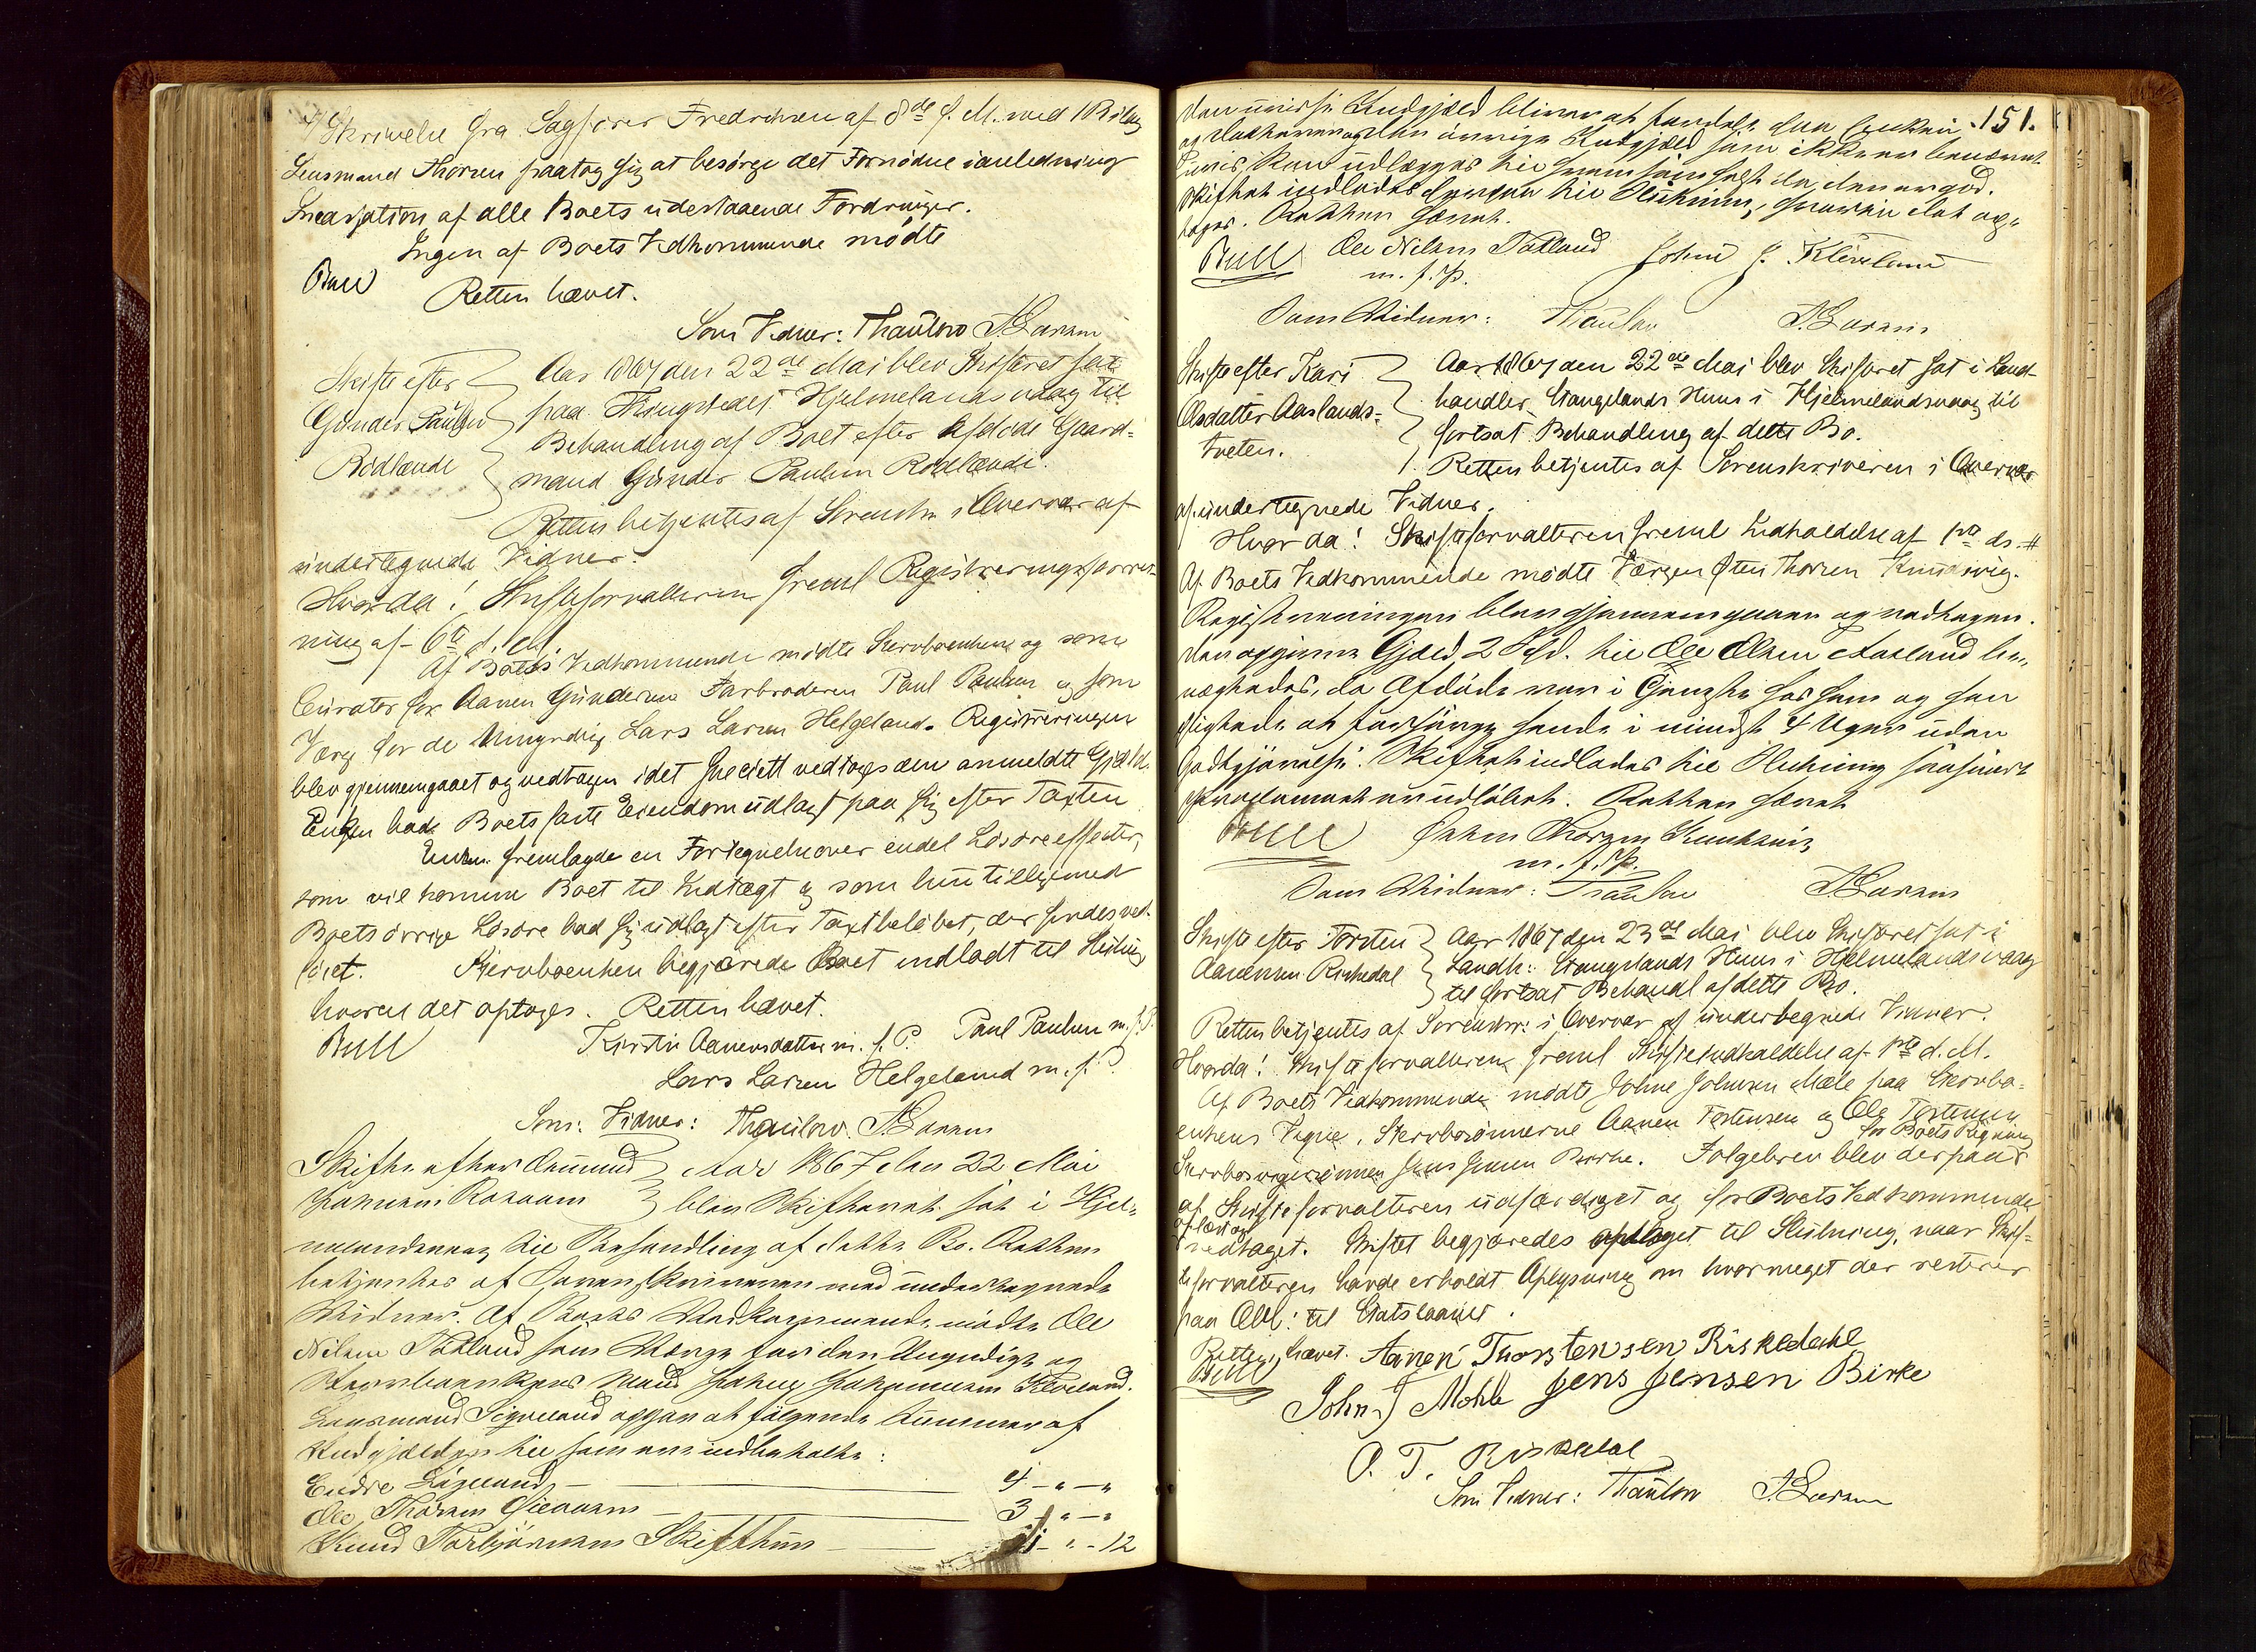 Skrivelse fra Sagfører Fredriksen af 8de f. M. med 1 Bilag
Lensmand Thorsen paatog sig at besörge det Fornödne i anledning
Incassation af alle Boets udestaaende Fordringer.
Ingen af Boets Vedkommende mödte
Bull
Retten hævet.
Som Vidner: Thaulow A Larsen
Skifte efter
Gunder Paulsen
Rödlende
Aar 1867 den 22de Mai blev Skifteret sat
paa Thingstedet Hjelmelandsvaag til
Behandling af Boet efter Afdöde Gaard-
mand Gunder Paulsen Rödlende.
Retten betjentes af Sorenskr i Overvær af
undertegnede Vidner.
Hvorda! Skifteforvalteren freml Registreringsforret-
ning af 6te d. M.
Af Boets Vedkommende mödte Stervboenken og som
Curator for Aanen Gundersen Farbroderen Paul Paulsen og som
Værg for de Umyndig Lars Larsen Helgeland. Registreringen
blev gjennemgaaet og vedtagen idet specielt vedtoges den anmeldte Gjæld.
Enken bad Boets faste Eiendom udlagt paa sig efter Taxten
Enken fremlagde en Fortegnelse over endel Lösöreeffecter,
som vil komme Boet til Indtægt og som hun tilligemed
Boets övrige Lösöre bad sig udlagt efter Taxtbelöbet, der fandes ved-
föiet. Stervboenken begjærede Boet indladt til Slutning
hvortil det optoges. Retten hævet.
Bull
Kirsti Aanensdatter m. f. P. Paul Paulsen m. f. P.
Lars Larsen Helgeland m. f. P.
Som Vidner: Thaulow. A Larsen
Skifte efter Omund
Rosaasen
Aar 1867 den 22 Mai
blev Skifteret sat i Hjel-
melandsvaag til Behandling af dette Bo. Retten
betjentes af Sorenskriveren med undertegnede
Vidner. Af Boets Vedkommende mödte Ole
Nilsen Tatland som Værge for den Umyndige og
Stervboenkens Mand Johne Johannesen Kleveland.
Lensmand Sigveland opgav at fölgende Summer af
Udgjælden til ham ere indbetalte:
Endre Sigveland — 4 - " - "
Ole Thorsen — 3 - " - "
Knud Torbjörnsen Skifthun — - " - 12
151.
Den uvisse Udgjæld bliver at fordele
og den övrige Udgjæld som ikke er benævnt
uvis, kan udlægges til ham som sagt da den er god.
Skiftet indlades derpaa til Slutning, hvortil det op-
toges. Retten hævet.
Bull Ole Nilsen Tatland John J. Kleveland
m. f. P.
Som Vidner: Thaulow A Larsen
Skifte efter Kari
Olsdatter Aaslands-
tveten.
Aar 1867 den 22de Mai blev Skifteret sat i Land-
handler Stangelands Huus i Hjelmelandsvaag til
fortsat Behandling af dette Bo.
Retten betjentes af Sorenskriveren i Overvær
af undertegnede Vidner.
Hvor da! Skifteforvalteren freml Indkaldelse af 1ste ds. #
Af Boets Vedkommende mödte Værgen Östen Thorsen Knudsvig.
Registreringen blev gjennemgaaen og vedtagen.
Den opgivne Gjæld, 2 Spd. til Ole Olsen Aasland be-
nægtedes, da Afdöde var i Tjeneste hos ham og han
pligtede at forsörge hende i mindst 4 Uger uden
Godtgjörelse. Skiftet indlades til Slutning saasnart
proclamaet er udlöbet. Retten hævet
Bull Östen Thorsen Knudsvig
m. f. P.
Som Vidner: Thaulow A Larsen
Skifte efter Torsten
Aanensen Riskedal
Aar 1867 den 23de Mai blev Skifteret sat i
Landh: Stangelands Huus i Hjelmelandsvaag
til fortsat Behandl af dette Bo.
Retten betjentes af Sorenskr: i Overvær af undertegnede Vidner.
Hvorda! Skifteforvalteren freml Skifteindkaldelse af 1ste d. M.
Af Boets Vedkommende mödte Johne Johnsen Mæle paa Stervbo-
enkens Vegne, Stervbosönnerne Aanen Torstensen og Ole Torstensen
Stervbosvigersönnen Jens Jensen Birke. Fölgebrev blev derpaa for Boets Regning
af Skifteforvalteren udfærdiget og for Boets Vedkommende
oplæst og
vedtaget. Skiftet begjæredes optaget til Slutning, naar Skif-
teforvalteren havde erholdt Oplysning om hvormeget der resterer
paa Obl: til Statslaanet.
Retten hævet. Aanen Thorstensen Riskedahl
Bull
John J Mæhle Jens Jensen Birke
O. T. Riskedal
Som Vidner: Thaulow A Larsen